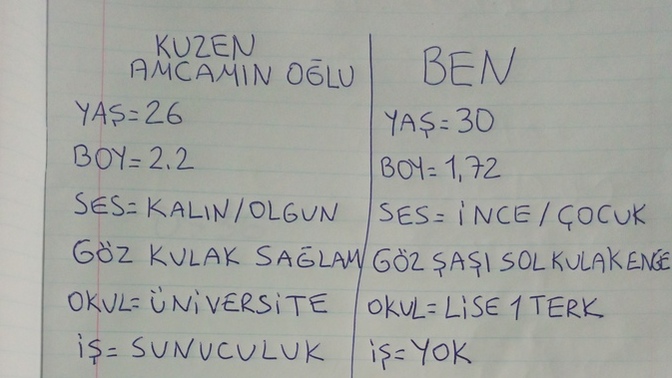 KUZEN
AMCAMIN OĞLU
YAŞ=26
BOY=2.2
SES=KALIN/OLGUN
GÖZ KULAK SAĞLAM
OKUL=ÜNİVERSİTE
İŞ=SUNUCULUK
BEN
YAŞ=30
BOY=1,72
SES=İNCE/ÇOCUK
GÖZ ŞAŞI SOL KULAK ENGE
OKUL=LİSE 1 TERK
İŞ=YOK